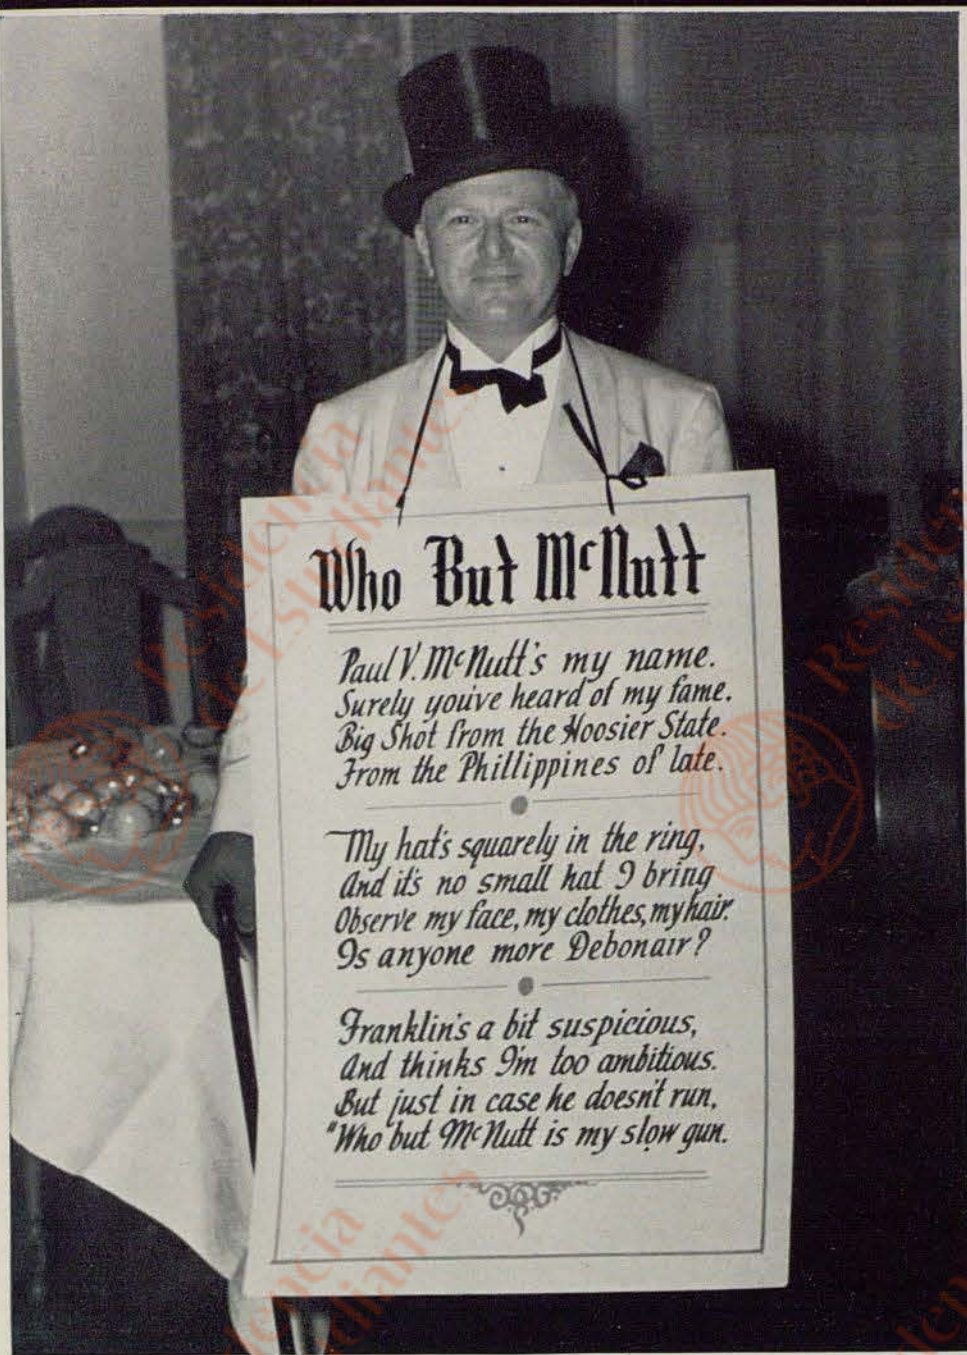 Who But McNutt
Paul V. McNutt's my name.
Surely youi've heard of my fame.
Big Shot from the Hoosier State.
From the Phillippines of late.
My hat's squarely in the ring,
And it's no small hat I bring
Observe my face, my clothes, my hair.
Is anyone more Debonair?
Franklin's a bit suspicious,
And thinks I'm too ambitious.
But just in case he doesn't run,
"Who but McNutt is my slow gun.
Residencia
de Estudiantes
Residencia
de Estudiantes